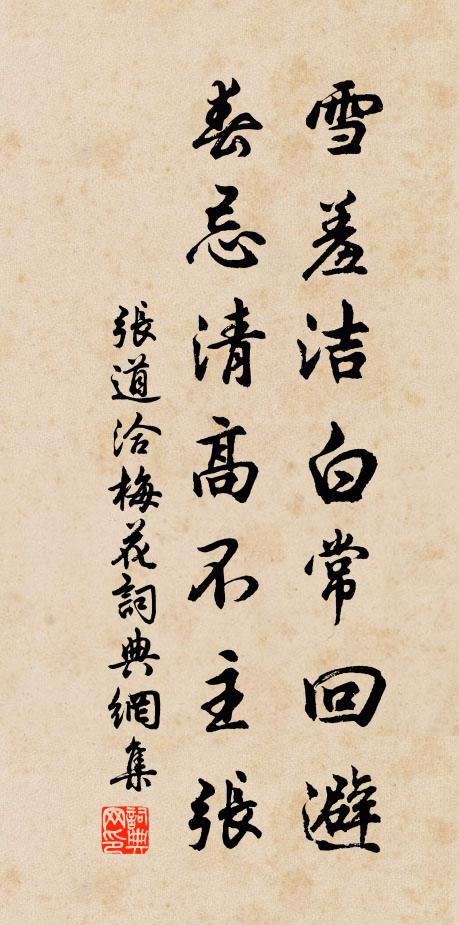 雪羞洁白常回避
春忌清高不主張
張道洽梅花詞典網集
詞典網印